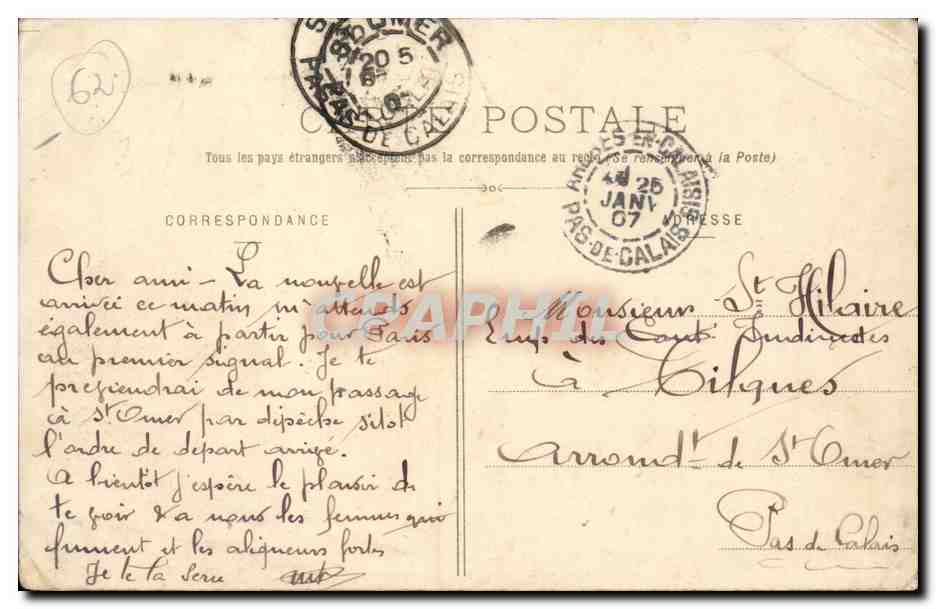 62
ST OMER
20 5
PAS DE CALAIS
CARTE POSTALE
Tous les pays étrangers n'acceptent pas la correspondance au recto (Se renseigner à la Poste)
ARDRES-EN-CALAISIS
25
JANV
07
PAS-DE-CALAIS
CORRESPONDANCE
ADRESSE
Cher ami - La nouvelle est
arrivée ce matin m'attends
également à partir pour Paris
au premier signal. Je te
préviendrai de mon passage
à St Omer par dépèche sitot
l'ordre de départ arrivé.
A bientôt j'espère le plaisir de
te voir & a nous les femmes qui
fument et les aliqueurs fortes
Je te la serre
Monsieur St Hilaire
Emp des Cont Indirectes
à Tilques
Arrondt de St Omer
Pas de Calais
CPAPHIL